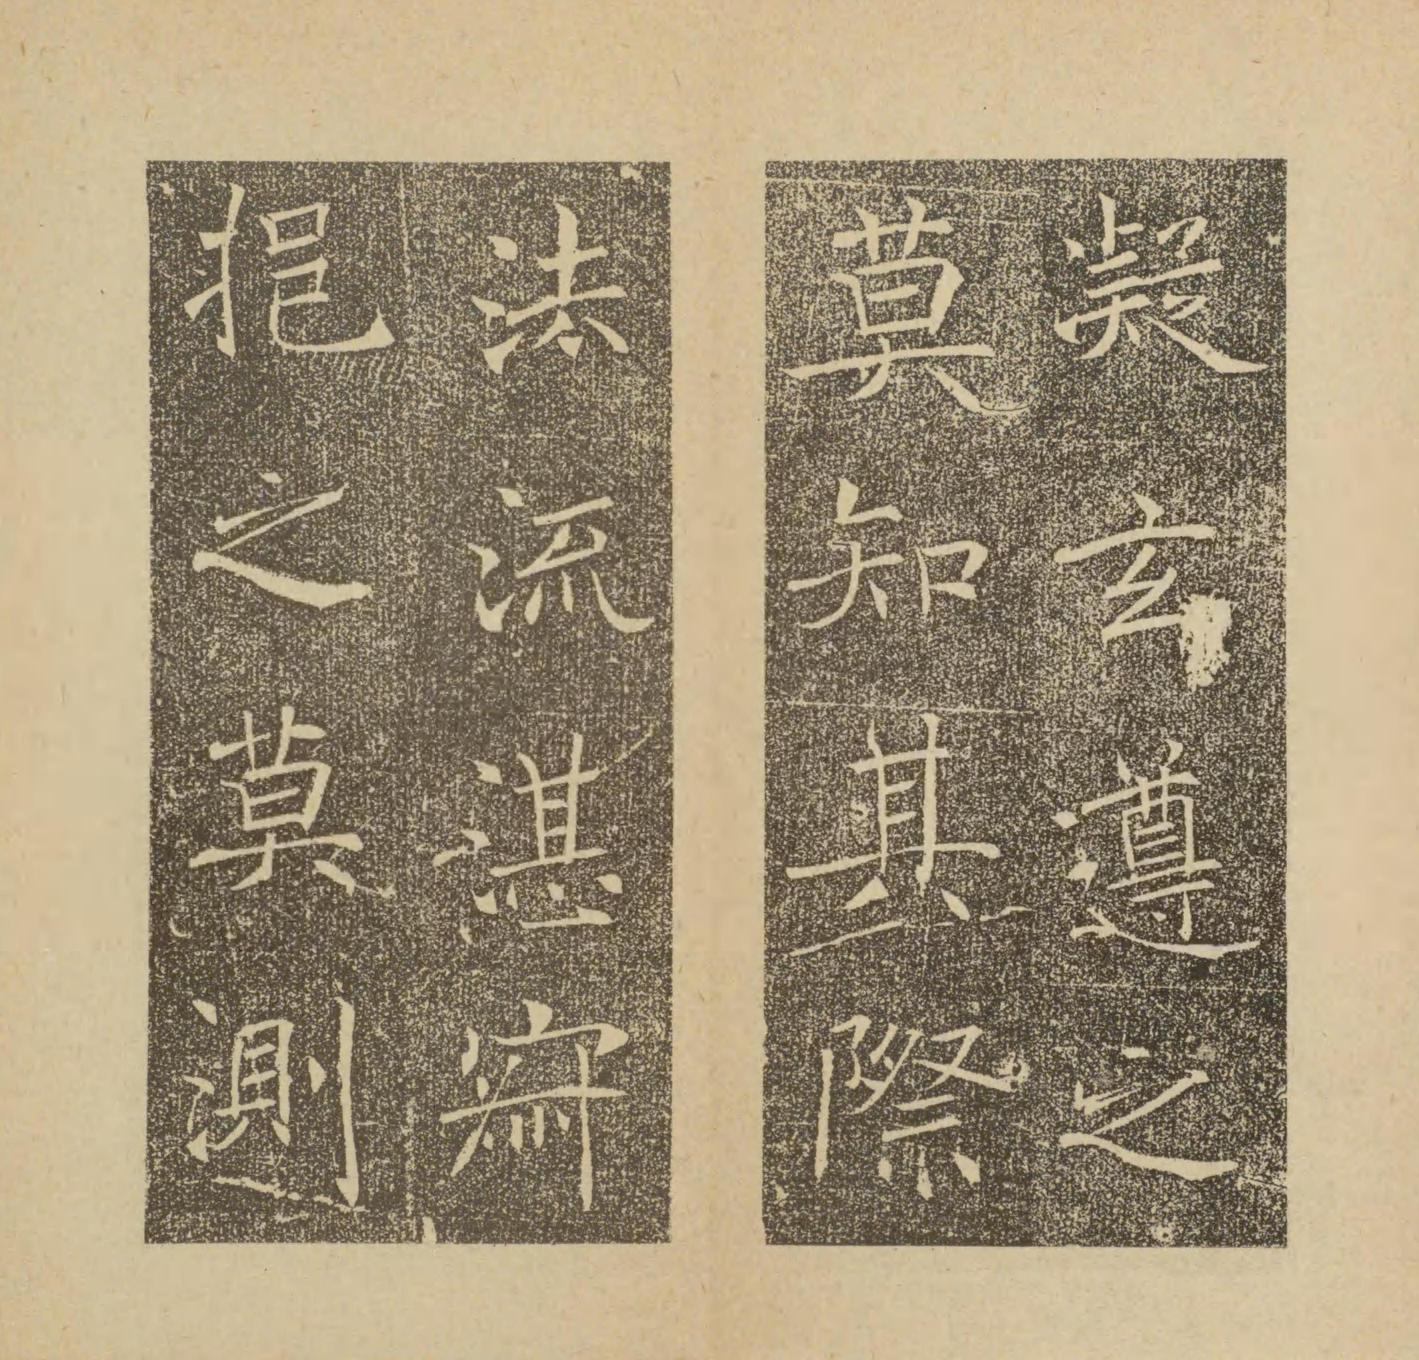 凝玄遵之
莫知其際
法流湛寂
挹之莫測